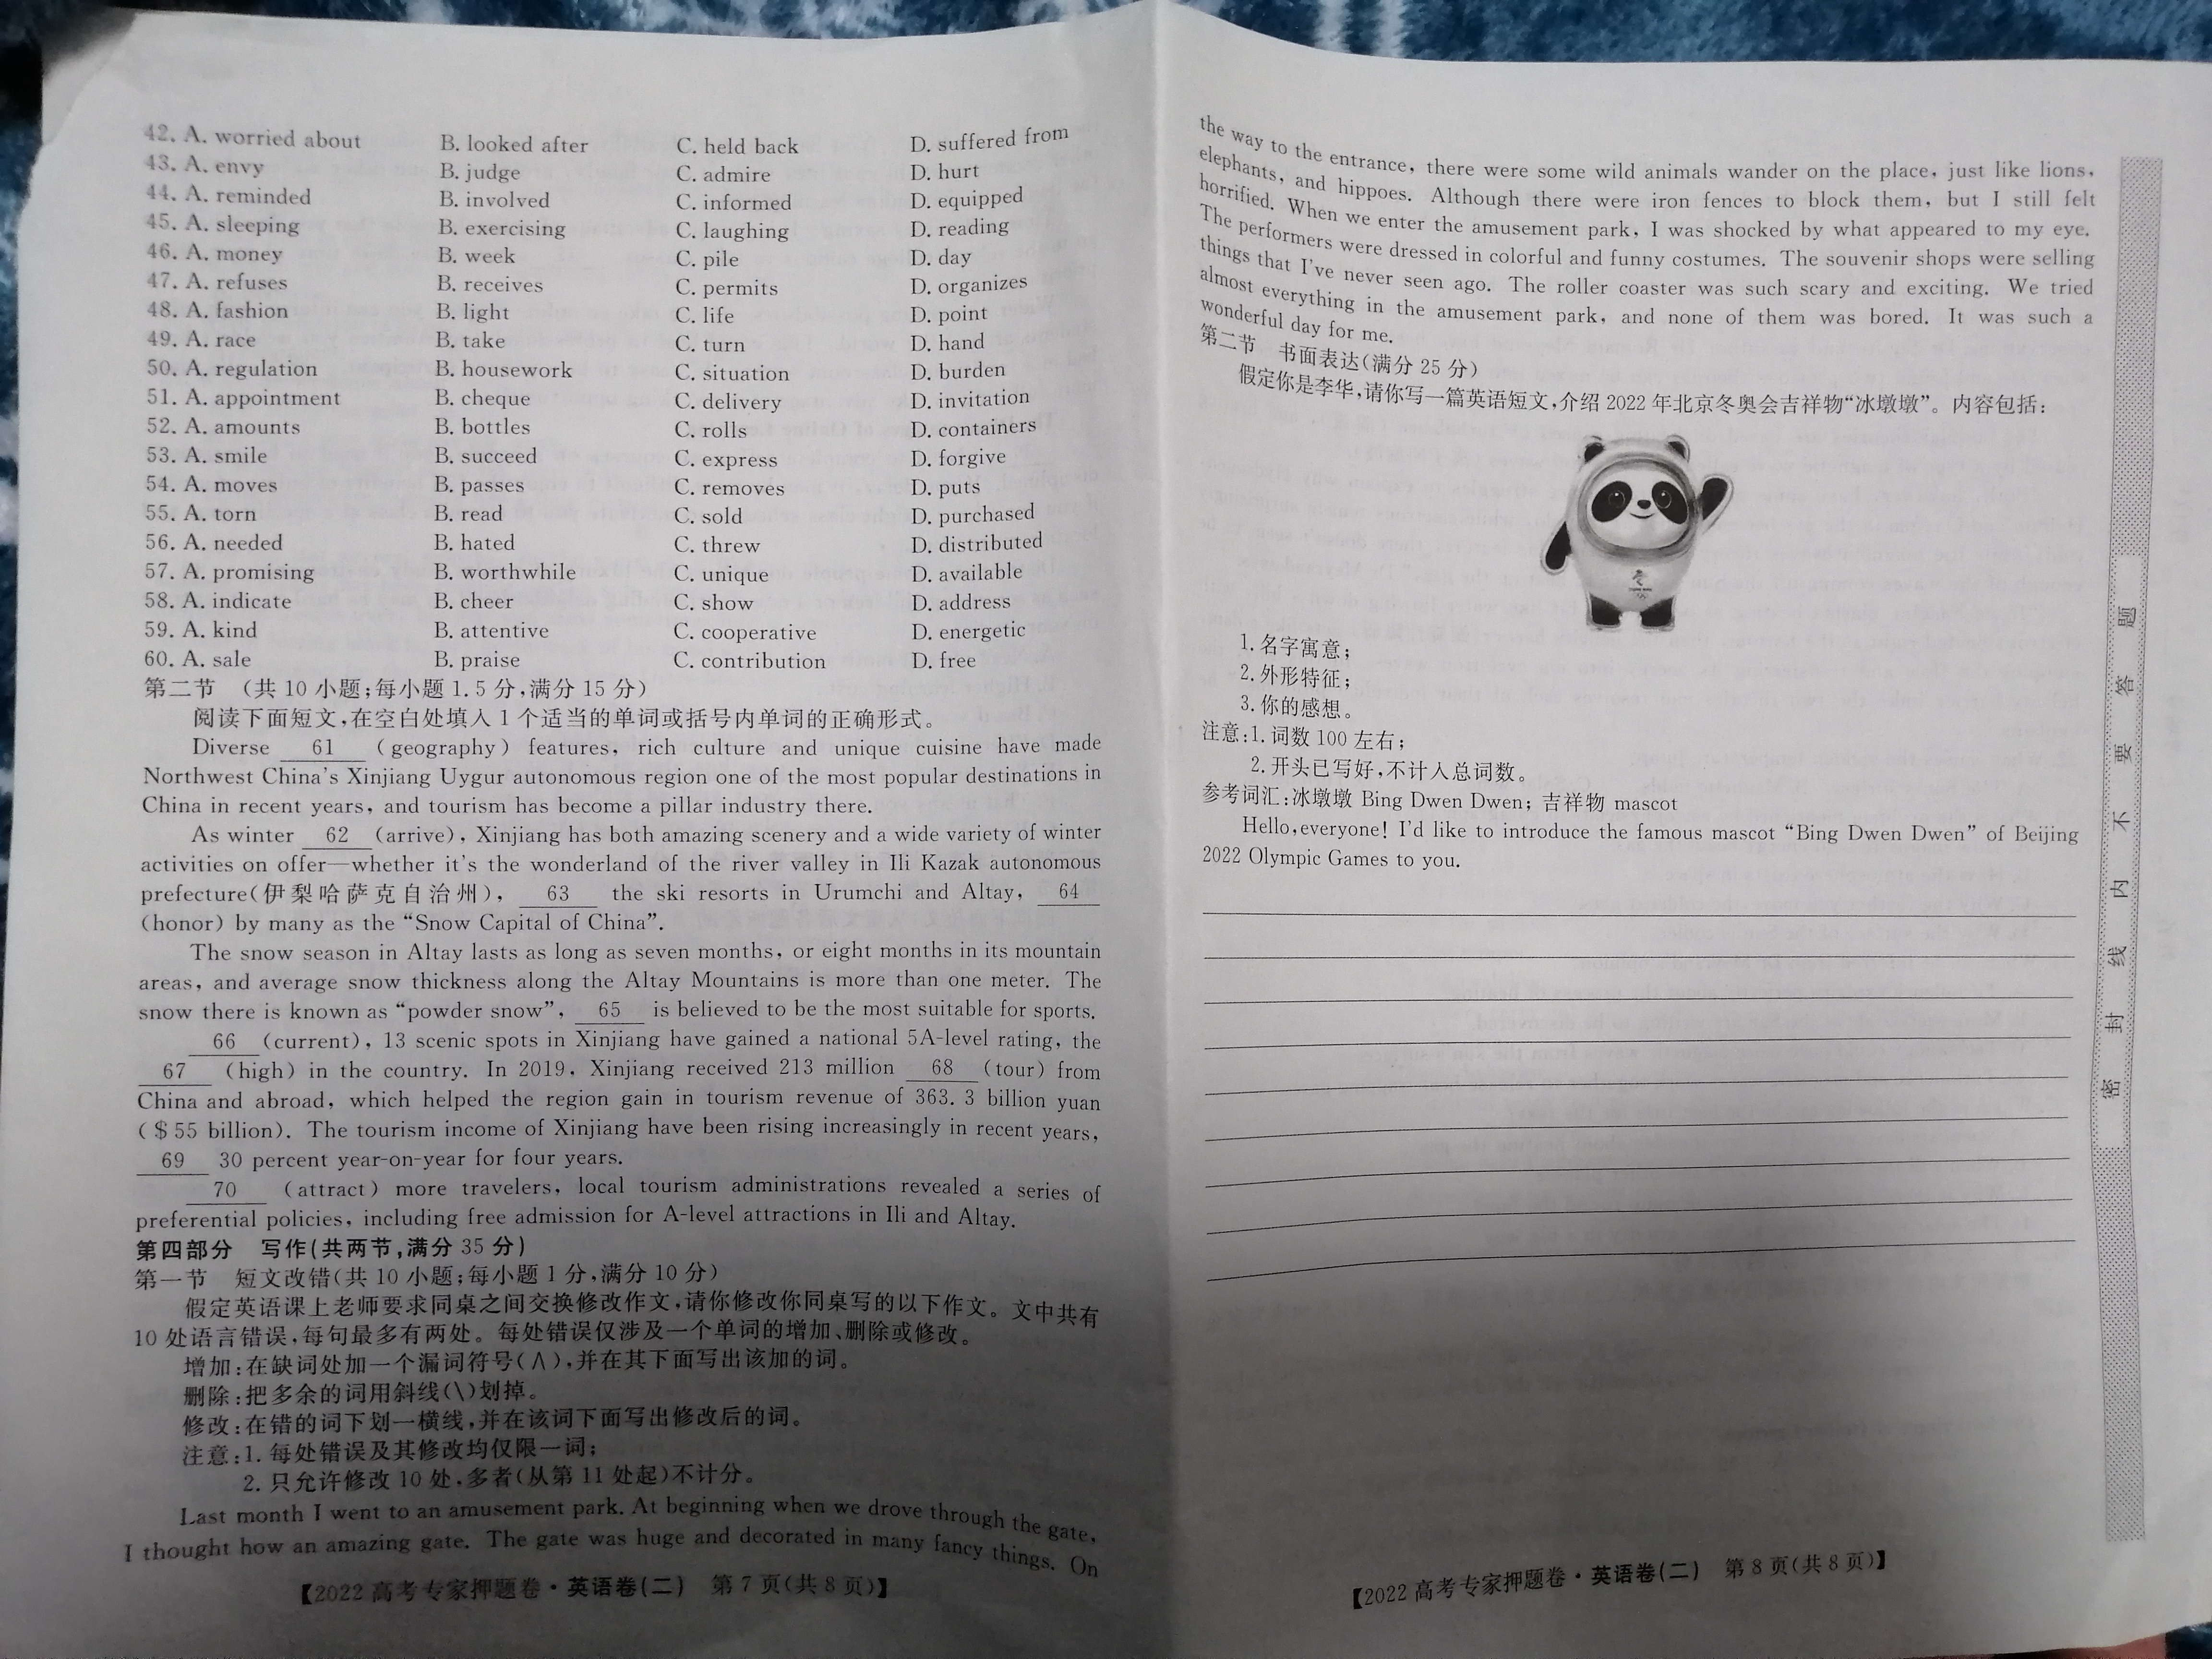 42. A. worried about B. looked after C. held back D. suffered from
43. A. envy B. judge C. admire D. hurt
44. A. reminded B. involved C. informed D. equipped
45. A. sleeping B. exercising C. laughing D. reading
46. A. money B. week C. pile D. day
47. A. refuses B. receives C. permits D. organizes
48. A. fashion B. light C. life D. point
49. A. race B. take C. turn D. hand
50. A. regulation B. housework C. situation D. burden
51. A. appointment B. cheque C. delivery D. invitation
52. A. amounts B. bottles C. rolls D. containers
53. A. smile B. succeed C. express D. forgive
54. A. moves B. passes C. removes D. puts
55. A. torn B. read C. sold D. purchased
56. A. needed B. hated C. threw D. distributed
57. A. promising B. worthwhile C. unique D. available
58. A. indicate B. cheer C. show D. address
59. A. kind B. attentive C. cooperative D. energetic
60. A. sale B. praise C. contribution D. free
第二节 (共 10 小题;每小题 1.5 分,满分 15 分)
阅读下面短文,在空白处填入 1 个适当的单词或括号内单词的正确形式。
Diverse 61 (geography) features, rich culture and unique cuisine have made
Northwest China's Xinjiang Uygur autonomous region one of the most popular destinations in
China in recent years, and tourism has become a pillar industry there.
As winter 62 (arrive), Xinjiang has both amazing scenery and a wide variety of winter
activities on offer—whether it's the wonderland of the river valley in Ili Kazak autonomous
prefecture(伊犁哈萨克自治州), 63 the ski resorts in Urumchi and Altay, 64
(honor) by many as the “Snow Capital of China”.
The snow season in Altay lasts as long as seven months, or eight months in its mountain
areas, and average snow thickness along the Altay Mountains is more than one meter. The
snow there is known as “powder snow”, 65 is believed to be the most suitable for sports.
66 (current), 13 scenic spots in Xinjiang have gained a national 5A-level rating, the
67 (high) in the country. In 2019, Xinjiang received 213 million 68 (tour) from
China and abroad, which helped the region gain in tourism revenue of 363. 3 billion yuan
($55 billion). The tourism income of Xinjiang have been rising increasingly in recent years,
69 30 percent year-on-year for four years.
70 (attract) more travelers, local tourism administrations revealed a series of
preferential policies, including free admission for A-level attractions in Ili and Altay.
第四部分 写作(共两节,满分 35 分)
第一节 短文改错(共 10 小题;每小题 1 分,满分 10 分)
假定英语课上老师要求同桌之间交换修改作文,请你修改你同桌写的以下作文。文中共有
10 处语言错误,每句最多有两处。每处错误仅涉及一个单词的增加、删除或修改。
增加:在缺词处加一个漏词符号(∧),并在其下面写出该加的词。
删除:把多余的词用斜线(\)划掉。
修改:在错的词下划一横线,并在该词下面写出修改后的词。
注意:1. 每处错误及其修改均仅限一词;
2. 只允许修改 10 处,多者(从第 11 处起)不计分。
Last month I went to an amusement park. At beginning when we drove through the gate,
I thought how an amazing gate. The gate was huge and decorated in many fancy things. On
【2022 高考专家押题卷·英语卷(二) 第 7 页(共 8 页)】
the way to the entrance, there were some wild animals wander on the place, just like lions,
elephants, and hippoes. Although there were iron fences to block them, but I still felt
horrified. When we enter the amusement park, I was shocked by what appeared to my eye.
The performers were dressed in colorful and funny costumes. The souvenir shops were selling
things that I've never seen ago. The roller coaster was such scary and exciting. We tried
almost everything in the amusement park, and none of them was bored. It was such a
wonderful day for me.
第二节 书面表达(满分 25 分)
假定你是李华,请你写一篇英语短文,介绍 2022 年北京冬奥会吉祥物“冰墩墩”。内容包括:
1. 名字寓意;
2. 外形特征;
3. 你的感想。
注意:1. 词数 100 左右;
2. 开头已写好,不计入总词数。
参考词汇:冰墩墩 Bing Dwen Dwen; 吉祥物 mascot
Hello, everyone! I'd like to introduce the famous mascot “Bing Dwen Dwen” of Beijing
2022 Olympic Games to you.
【2022 高考专家押题卷·英语卷(二) 第 8 页(共 8 页)】
密 封 线 内 不 要 答 题